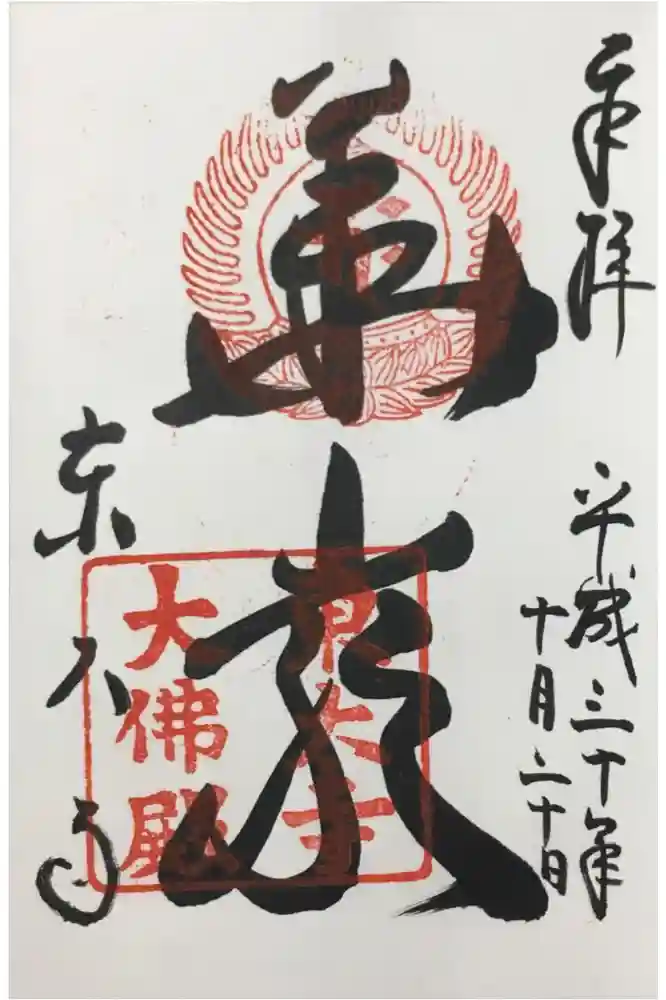 奉拝
平成三十年
十月二十日
華厳
東大寺
大佛殿
東大寺